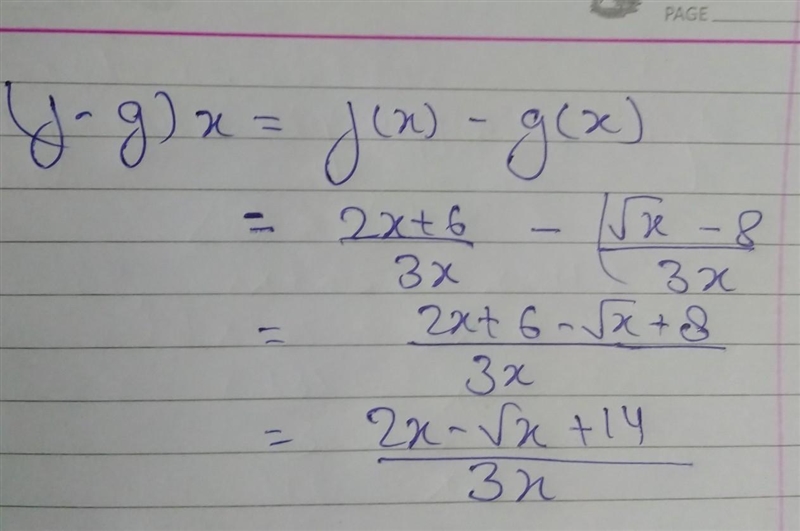 PAGE
(f - g) x = f(x) - g(x)
= 2x+6 / 3x - (√x - 8 / 3x
= 2x + 6 - √x + 8 / 3x
= 2x - √x + 14 / 3x